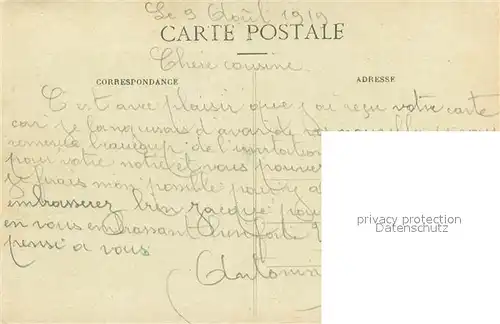 Le 9 Août 1919
CARTE POSTALE
Chère cousine
CORRESPONDANCE
ADRESSE
C'est avec plaisir que j'ai reçu votre carte
car je languissais d'avoir de vos nouvelles je vous
remercie beaucoup de l'invitation
pour votre et vous pouvez
je ferais mon possible pour y
embrasserez bien pour
en vous embrassant bien fort
pense à vous
privacy protection
www.ansichtskarten-center.de